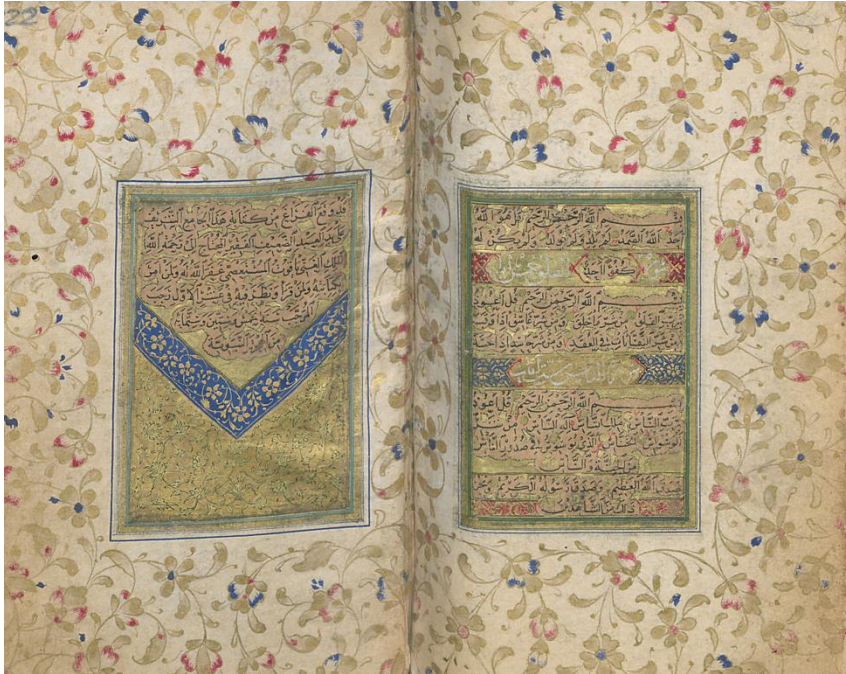 بسم الله الرحمن الرحيم قل هو الله
احد الله الصمد لم يلد ولم يولد ولم يكن له
كفوا احد
بسم الله الرحمن الرحيم قل اعوذ
برب الفلق من شر ما خلق ومن شر غاسق اذا وقب
ومن شر النفاثات في العقد ومن شر حاسد اذا حسد
بسم الله الرحمن الرحيم قل اعوذ
برب الناس ملك الناس اله الناس من شر
الوسواس الخناس الذي يوسوس في صدور الناس
من الجنة والناس
صدق الله العظيم وصدق رسوله الكريم ونحن
ذلك من الشاهدين
22
وقع الفراغ من كتابة هذا الجامع الشريف
على يد العبد الضعيف الفقير المحتاج الى رحمة الله
الملك الغني ياقوت المستعصمي غفر الله له ولمن امر
كتابته ولمن قرأ ونظر فيه في عشر الاول رجب
المرجب سنة خمس وستين وستمأة
من الهجرة النبوية